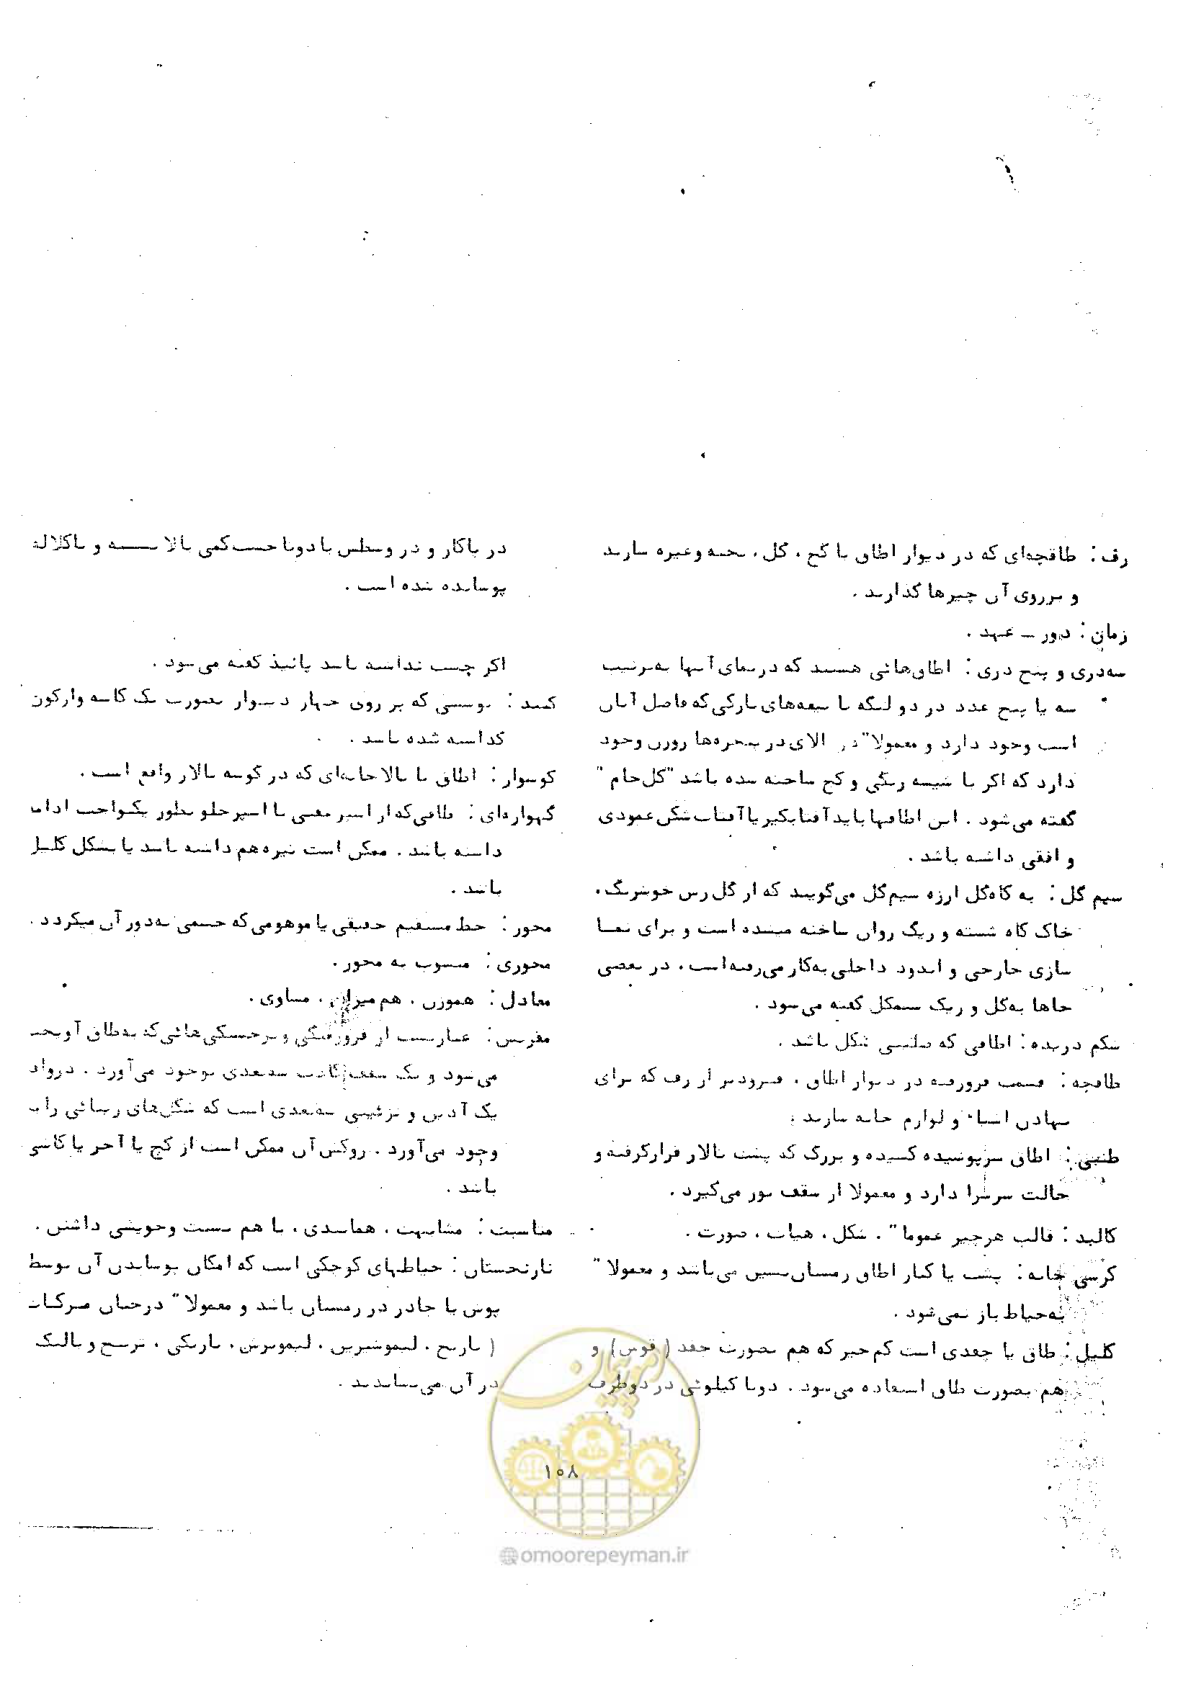 رف : طاقچه‌ای که در دیوار اطاق با گچ ، گل ، تخته وغیره سازند
و برروی آن چیزها گذارند .
زمان : دور ــ عهد .
سه‌دری و پنج دری : اطاق‌هائی هستند که درنمای آنها به‌ترتیب
سه یا پنج عدد در دو لنگه با تیغه‌های نازکی‌که فاصل آنان
است وجود دارد و معمولا" در بالای در پنجره‌ها روزن وجود
دارد که اگر با شیشه رنگی و گچ ساخته شده باشد "گل‌جام "
گفته می‌شود . این اطاقها باید آفتابگیر یا آفتاب شکن عمودی
و افقی داشته باشد .
سیم گل : به کاه‌گل ارزه سیم‌گل می‌گویند که از گل رس خوشرنگ ،
خاک کاه شسته و ریگ روان ساخته میشده است و برای نما
سازی خارجی و اندود داخلی به‌کار می‌رفته‌است ، در بعضی
جاها به‌گل و ریگ سیمگل گفته می‌شود .
شکم دریده : اطاقی که صلیبی شکل باشد .
طاقچه : قسمت فرورفته در دیوار اطاق ، فرودتر از رف که برای
نهادن اشیاء و لوازم خانه سازند .
طنبی : اطاق سرپوشیده کشیده و بزرگ که پشت تالار قرارگرفته و
حالت سرسرا دارد و معمولا از سقف نور می‌گیرد .
کالبد : قالب هرچیز عموما" ، شکل ، هیات ، صورت .
کرسی خانه : پشت یا کنار اطاق زمستان‌نشین می‌باشد و معمولا "
به‌حیاط باز نمی‌شود .
کلیل : طاق یا جعدی است کم‌خیز که هم بصورت جغد ( قوس ) و
هم بصورت طاق استفاده می‌شود . دوتا کیلوئی در دوطرف
در پاکار و در وسطش با دوتا چسب‌کمی بالا نشسته و باکلاله
پوشانده شده است .
اگر چسب نداشته باشد پانیذ گفته می‌شود .
گنبد : پوششی که بر روی چهار دیوار بصورت یک کاسه وارگون
گذاشته شده باشد .
گوشوار : اطاق یا بالاخانه‌ای که در گوشه تالار واقع است .
گهواره‌ای : طاقی‌که‌از اسپر عقبی تا اسپر جلو بطور یکنواخت ادامه
داشته باشد . ممکن است تیزه هم داشته باشد یا بشکل کلیل
باشد .
محور : خط مستقیم حقیقی یا موهومی‌که جسمی به‌دور آن میگردد .
محوری : منسوب به محور .
معادل : هموزن ، هم‌میزان ، مساوی .
مقرنس : عبارتست از فرورفتگی و برجستگی‌هائی‌که به‌طاق آویخته
می‌شود و یک سه‌بعدی بوجود می‌آورد . درواقع
یک آذین و تزئینی سه‌بعدی است که شکل‌های زیبائی را به
وجود می‌آورد . روکش آن ممکن است از گچ یا آجر یا کاشی
باشد .
مناسبت : مشابهت ، همانندی ، با هم نسبت وخویشی داشتن .
نارنجستان : حیاطهای کوچکی است که امکان پوشاندن آن توسط
پوش یا چادر در زمستان باشد و معمولا" درختان مرکبات
( نارنج ، لیموشیرین ، لیموترش ، نارنگی ، ترنج و بالنگ
در آن می‌نشاندند .
۱۰۸
امور پیمان
@omoorepeyman.ir